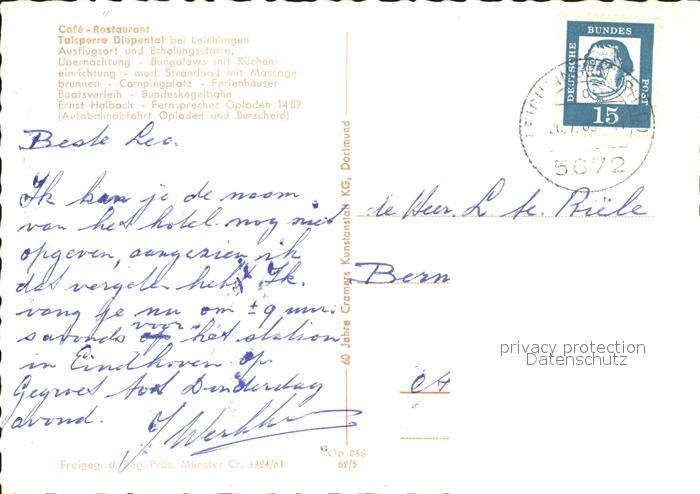 Café - Restaurant
Talsperre Diepental bei Leichlingen
Ausflugsort und Erholungsstätte,
Übernachtung - Bungalows mit Küchen-
einrichtung - mod. Strandbad mit Massage-
brunnen - Campingplatz - Ferienhäuser
Bootsverleih - Bundeskegelbahn
Ernst Halbach - Fernsprecher Opladen 1489
(Autobahnabfahrt Opladen und Burscheid)
Beste Leo.
Ik kan je de naam
van het hotel nog niet
opgeven, aangezien ik
dat vergeten heb. Ik
vang je nu om ± 9 uur
savonds voor het station
in Eindhoven op
Gegroet tot Donderdag
avond.
Freigeg. d. Reg.-Präs. Münster Cr. 3324/61
Op. 056
62/5
60 Jahre Cramers Kunstanstalt KG, Dortmund
DEUTSCHE BUNDES POST
15
5672
de Heer. L te Riële
Bern
privacy protection
Datenschutz